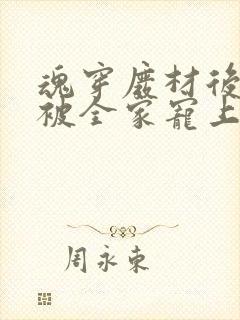 魂穿廢材後
被全家寵上
周永東